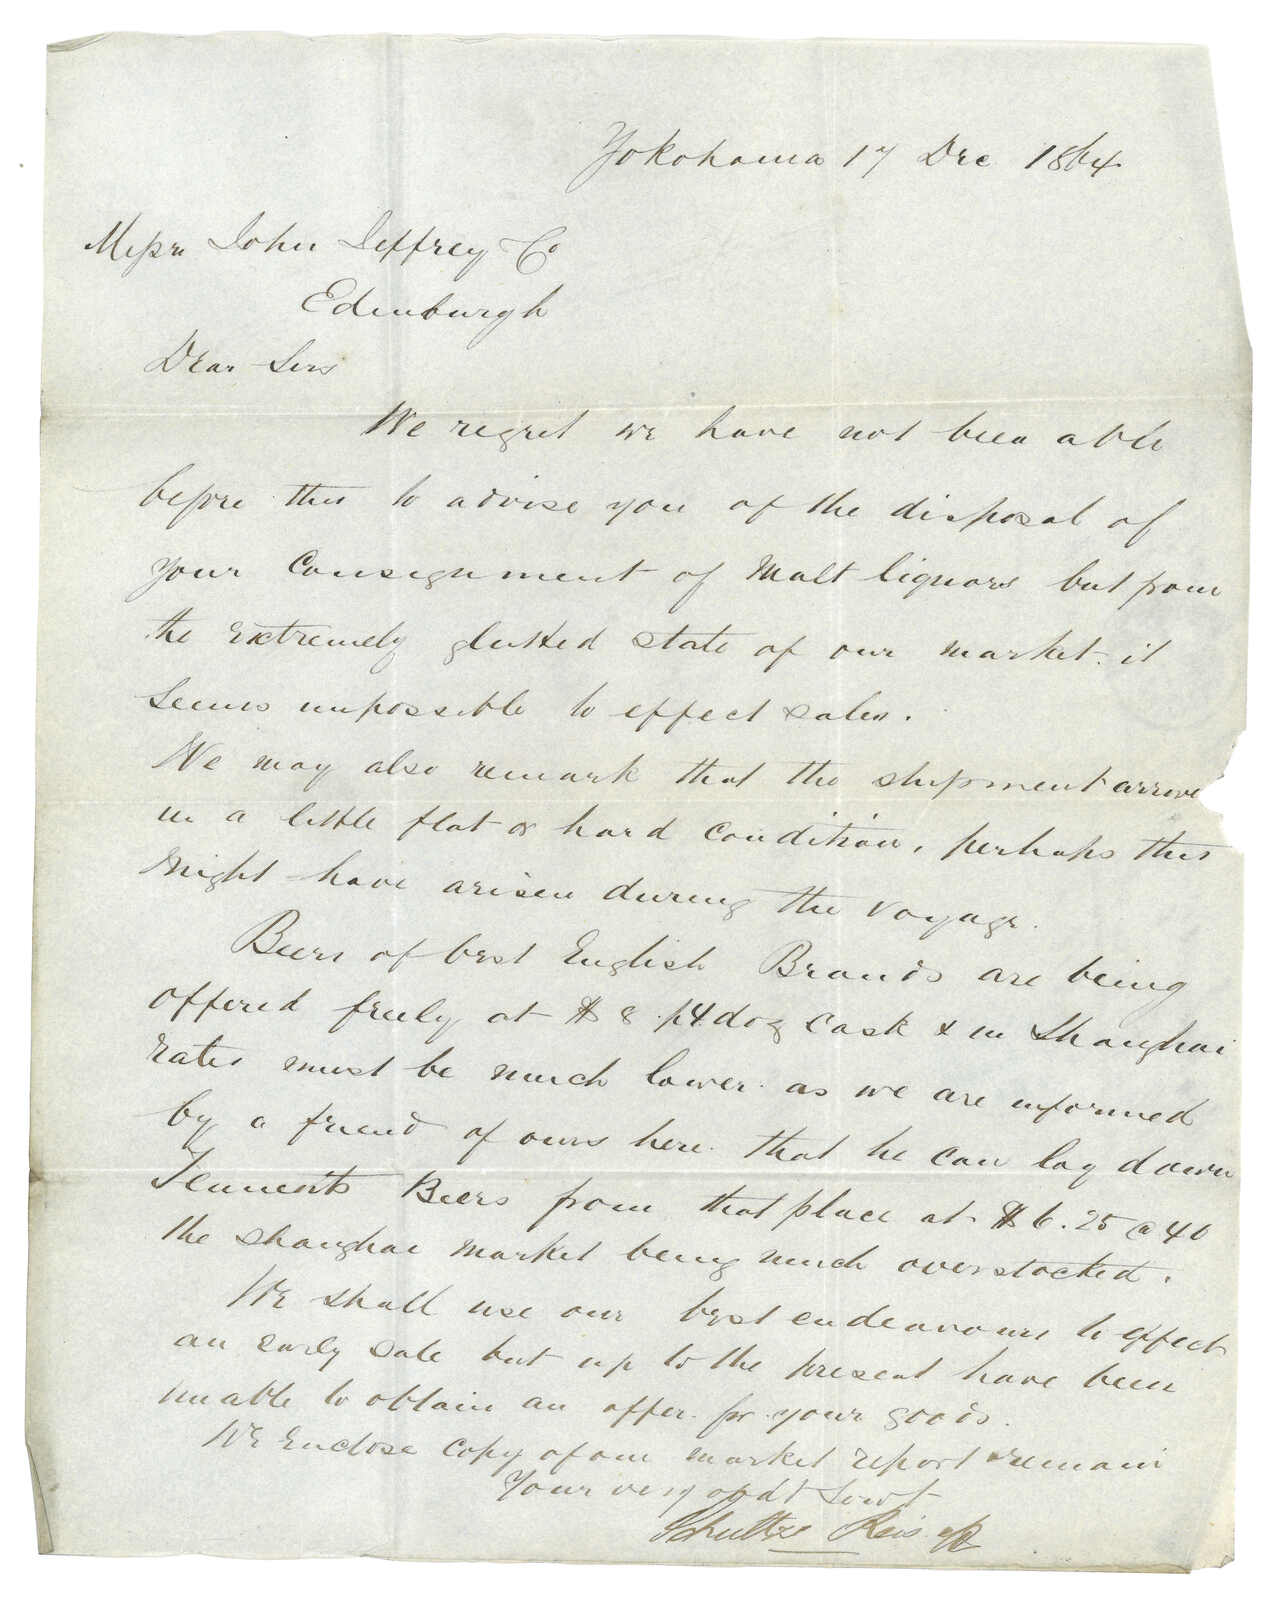 Yokohama 17 Dec 1864
Messrs John Jeffrey Co
Edinburgh
Dear Sirs
We regret we have not been able
before this to advise you of the disposal of
your Consignment of Malt liquors but from
the extremely glutted state of our market it
seems impossible to effect sales.
We may also remark that the shipment arrive
in a little flat or hard condition, perhaps this
might have arisen during the voyage.
Beers of best English Brands are being
offered freely at $8 p 4 doz cask & in Shanghai
rates must be much lower as we are informed
by a friend of ours here that he can lay down
Tennents Beers from that place at $6.25 @ 40
the Shanghai market being much overstocked.
We shall use our best endeavours to effect
an early sale but up to the present have been
unable to obtain an offer for your goods.
We enclose copy of our market report & remain
Your very obdt Servt
Schultze Reis